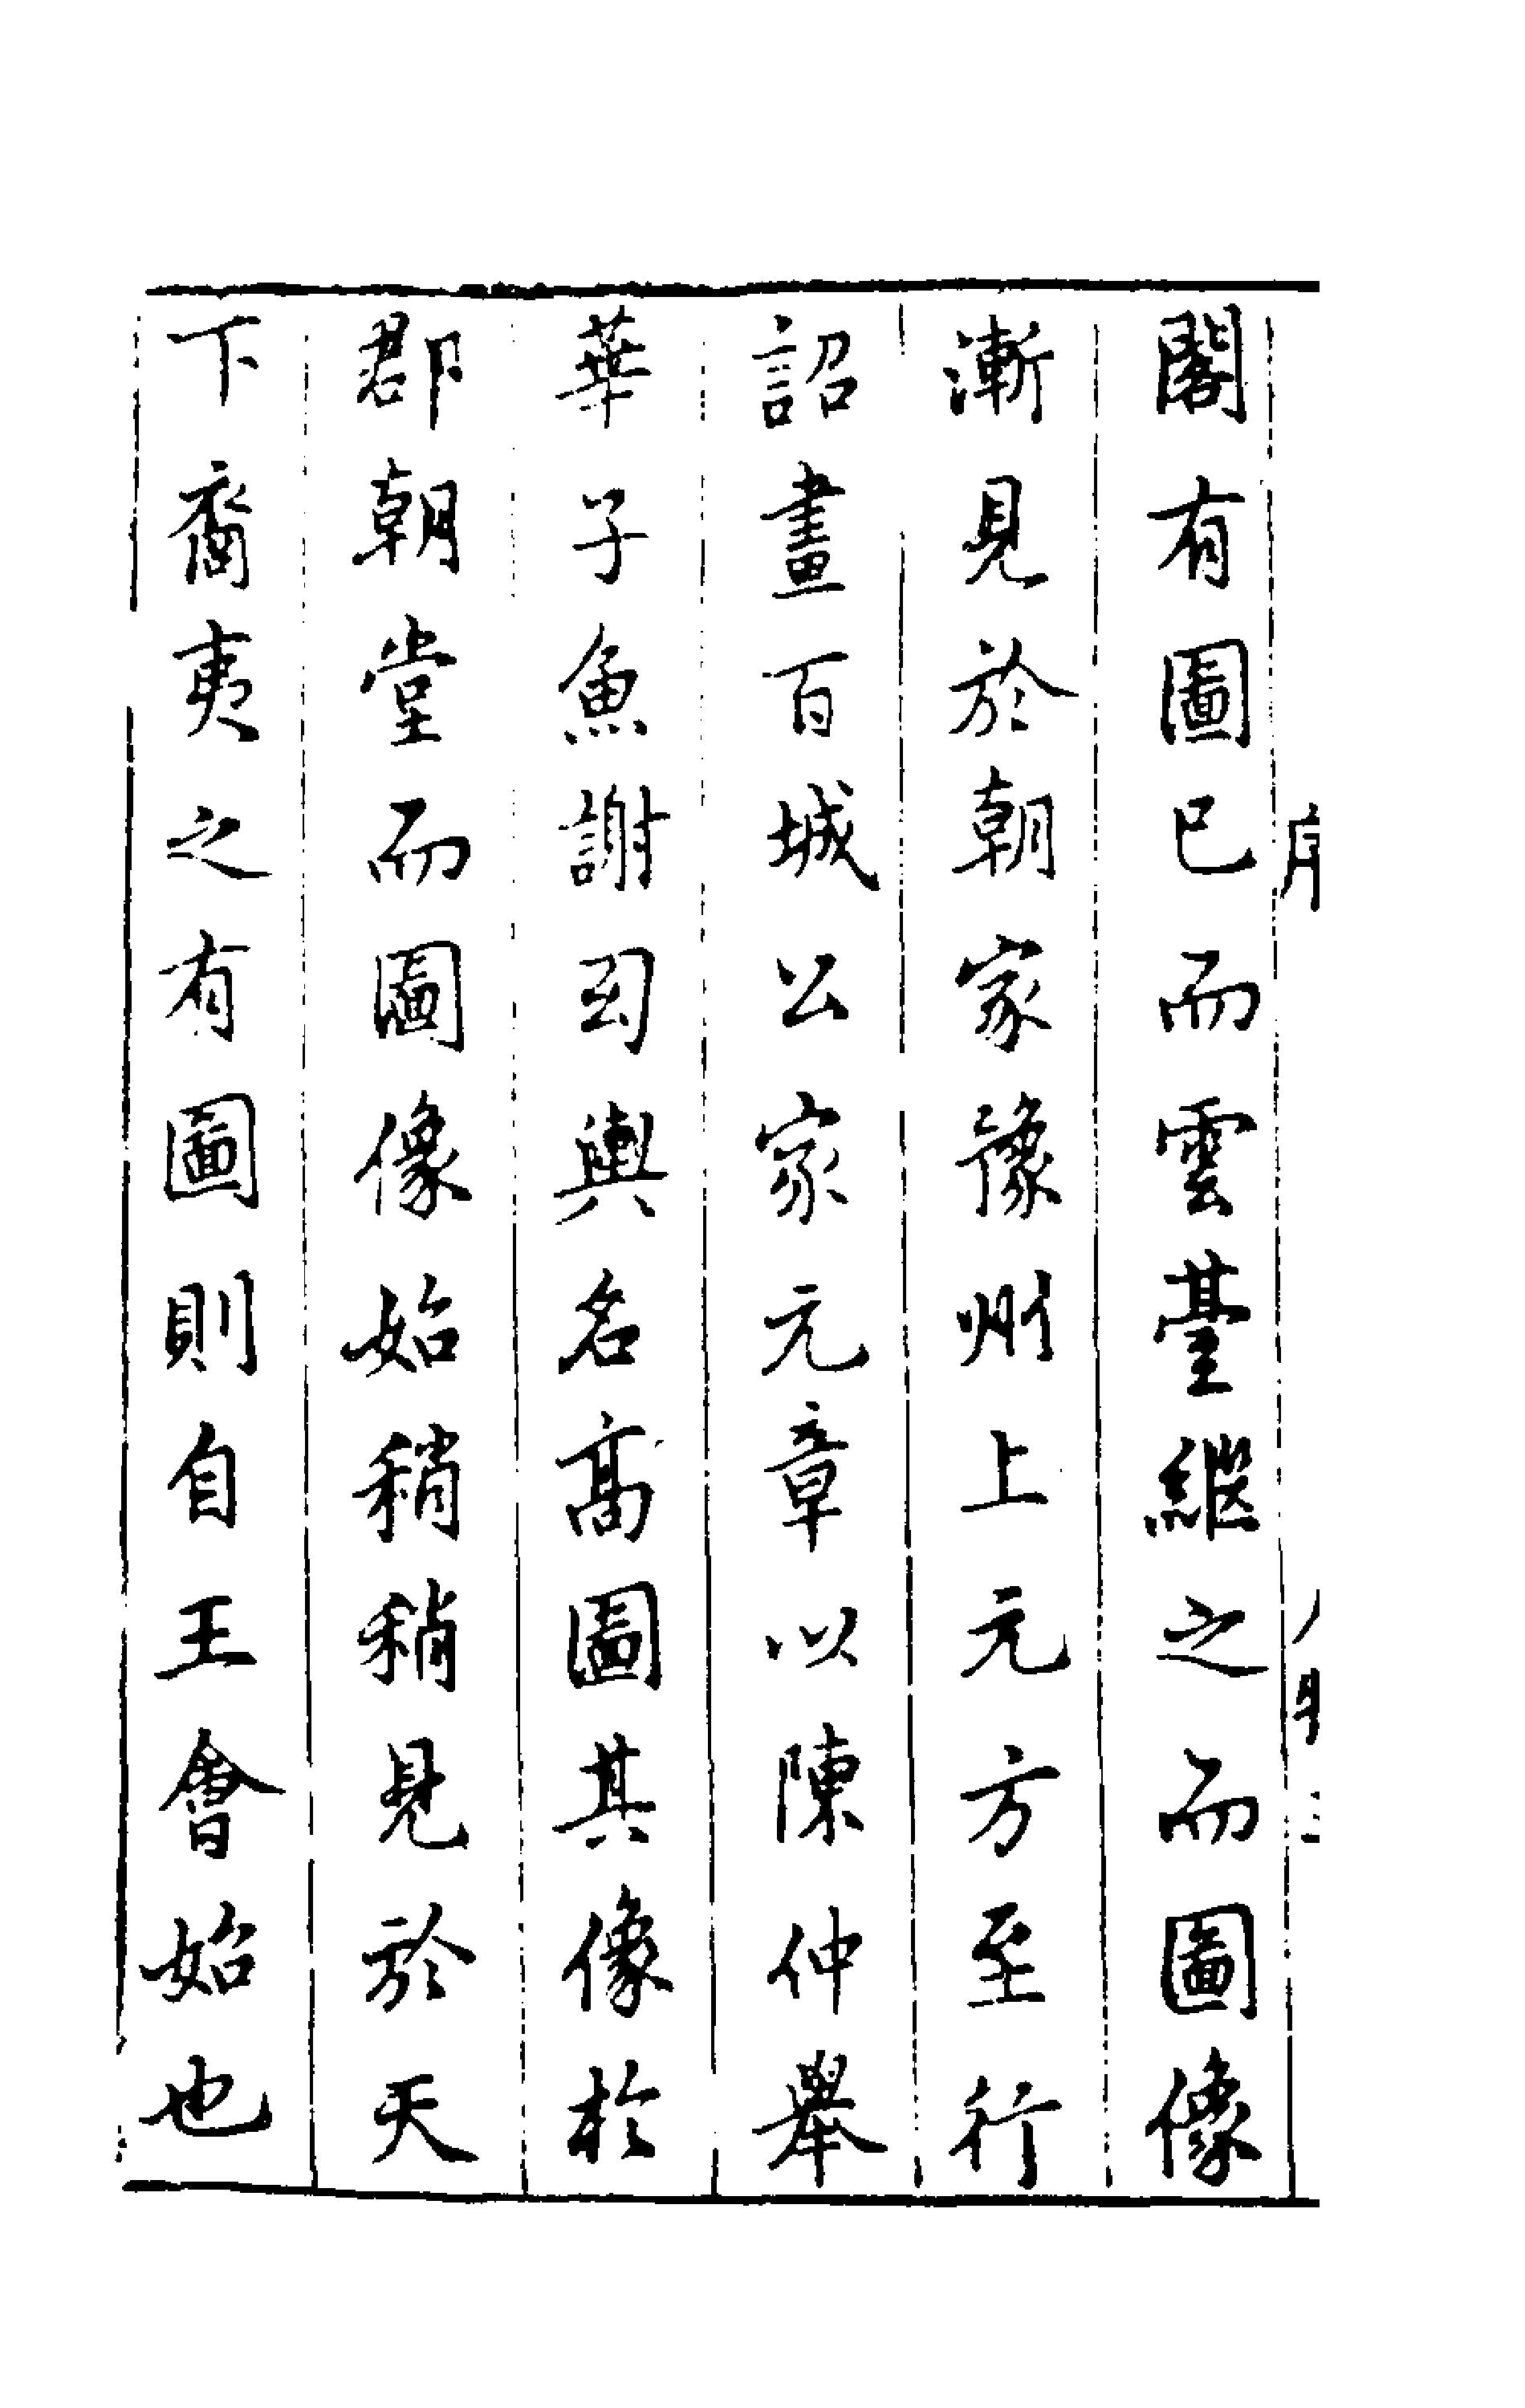 閣有圖已而雲臺繼之而圖像
漸見於朝家豫州上元方至行
詔畫百城公家元章以陳仲舉
華子魚謝㓜輿名高圖其像於
郡朝堂而圖像始稍稍見於天
下裔夷之有圖則自王會始也
序